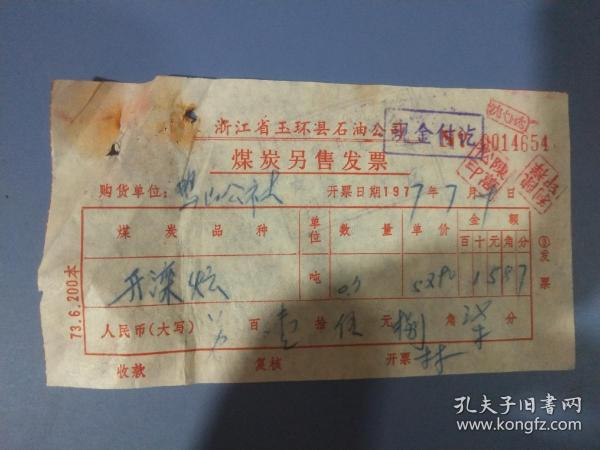 浙江省玉环县石油公司
现金付讫
0014654
煤炭另售发票
购货单位: 公社 开票日期1977年7月 日
煤炭品种 单位 数量 单价 金额
百十元角分
开滦炭 吨 0.3 5290 1587
人民币(大写) 百壹拾伍元捌角柒分
收款 复核 开票 林
73.6.200本
③发票
孔夫子旧书网
www.kongfz.com